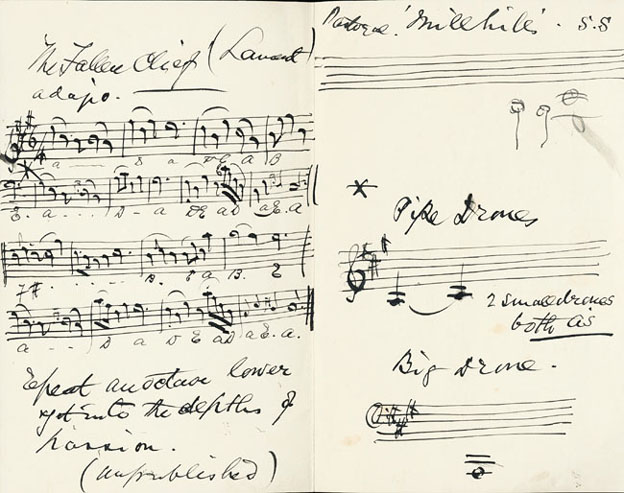 The Fallen Chief (Lament)
adajo.
a - - - - D a DE A B
E. a - - - D - a DE aD aE.a
7#. - - - B. E A B. E
a - - - D a D E aD a E. a.
Repeat an octave lower
get into the depths of
passion.
(unpublished)
'Millhills' - S.S
*
Pipe Drones
2 small drones
both As
Big Drone.